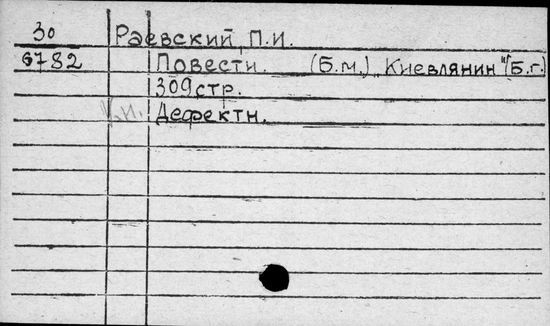 30 Раевский, П.И.
6782 Повести. (Б.м.) „Киевлянин" (Б.г.)
309стр.
Дефектн.